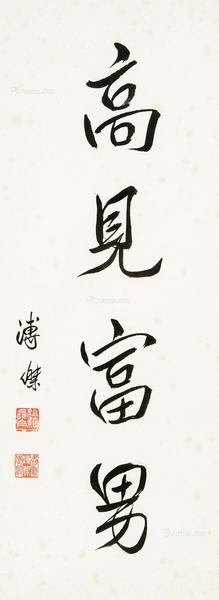 高見富男
溥傑